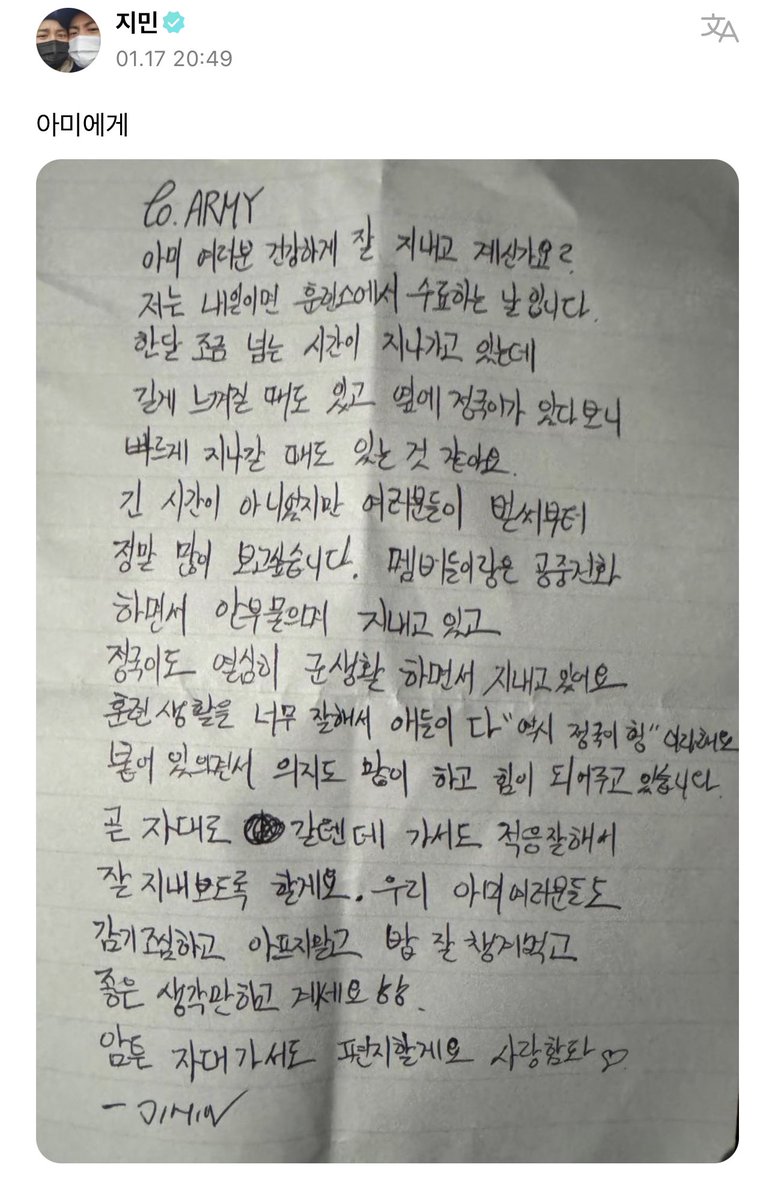 지민
01.17 20:49
아미에게
To. ARMY
아미 여러분 건강하게 잘 지내고 계신가요?
저는 내일이면 훈련소에서 수료하는 날입니다.
한달 조금 넘는 시간이 지나가고 있는데
길게 느껴질 때도 있고 옆에 정국이가 있다보니
빠르게 지나갈 때도 있는 것 같아요.
긴 시간이 아니었지만 여러분들이 벌써부터
정말 많이 보고싶습니다. 멤버들이랑은 공중전화
하면서 안부물으며 지내고 있고
정국이도 열심히 군생활 하면서 지내고 있어요
훈련 생활을 너무 잘해서 애들이 다 "역시 정국이 형" 이래요
붙어 있으면서 의지도 많이 하고 힘이 되어주고 있습니다.
곧 자대로 갈텐데 가서도 적응잘해서
잘 지내보도록 할게요. 우리 아미여러분들도
감기조심하고 아프지말고 밥 잘 챙겨먹고
좋은 생각만하고 계세요
암튼 자대가서도 편지할게요 사랑함돠♡
- JIMIN